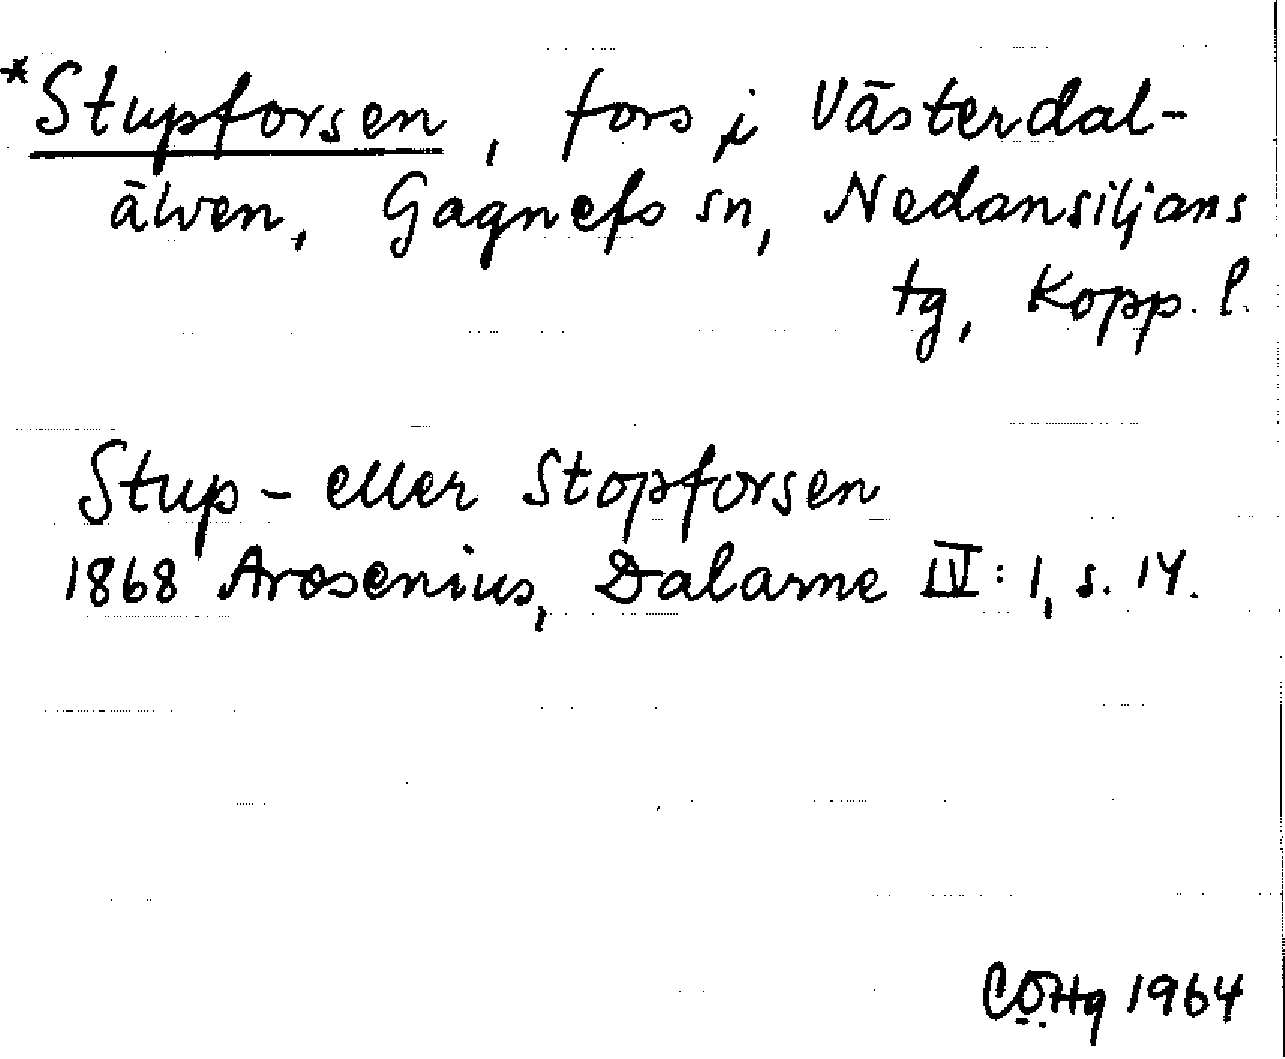 *Stupforsen, fors i Västerdal-
älven, Gagnefs sn, Nedansiljans
tg, Kopp. l.
Stup- eller Stopforsen
1868 Arosenius, Dalarne IV: 1, s. 14.
1964